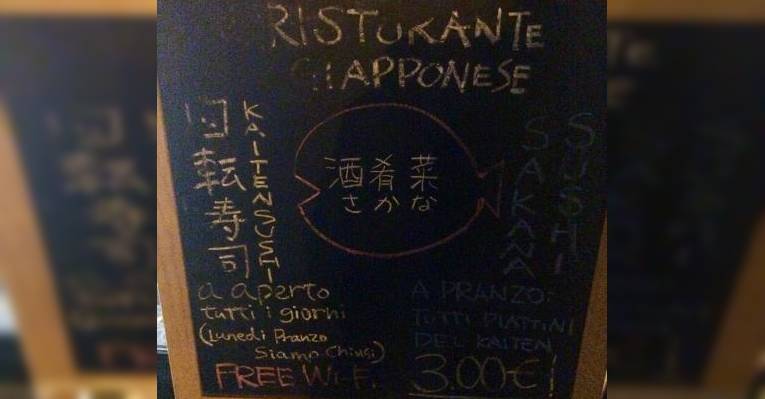 RISTORANTE
GIAPPONESE
回転寿司
KAITENSUSHI
酒肴菜
さかな
SAKANA
SUSHI
a aperto
tutti i giorni
(Lunedi Pranzo
Siamo Chiusi)
FREE Wi-Fi
A PRANZO:
TUTTI PIATTINI
DEL KAITEN
3.00€!